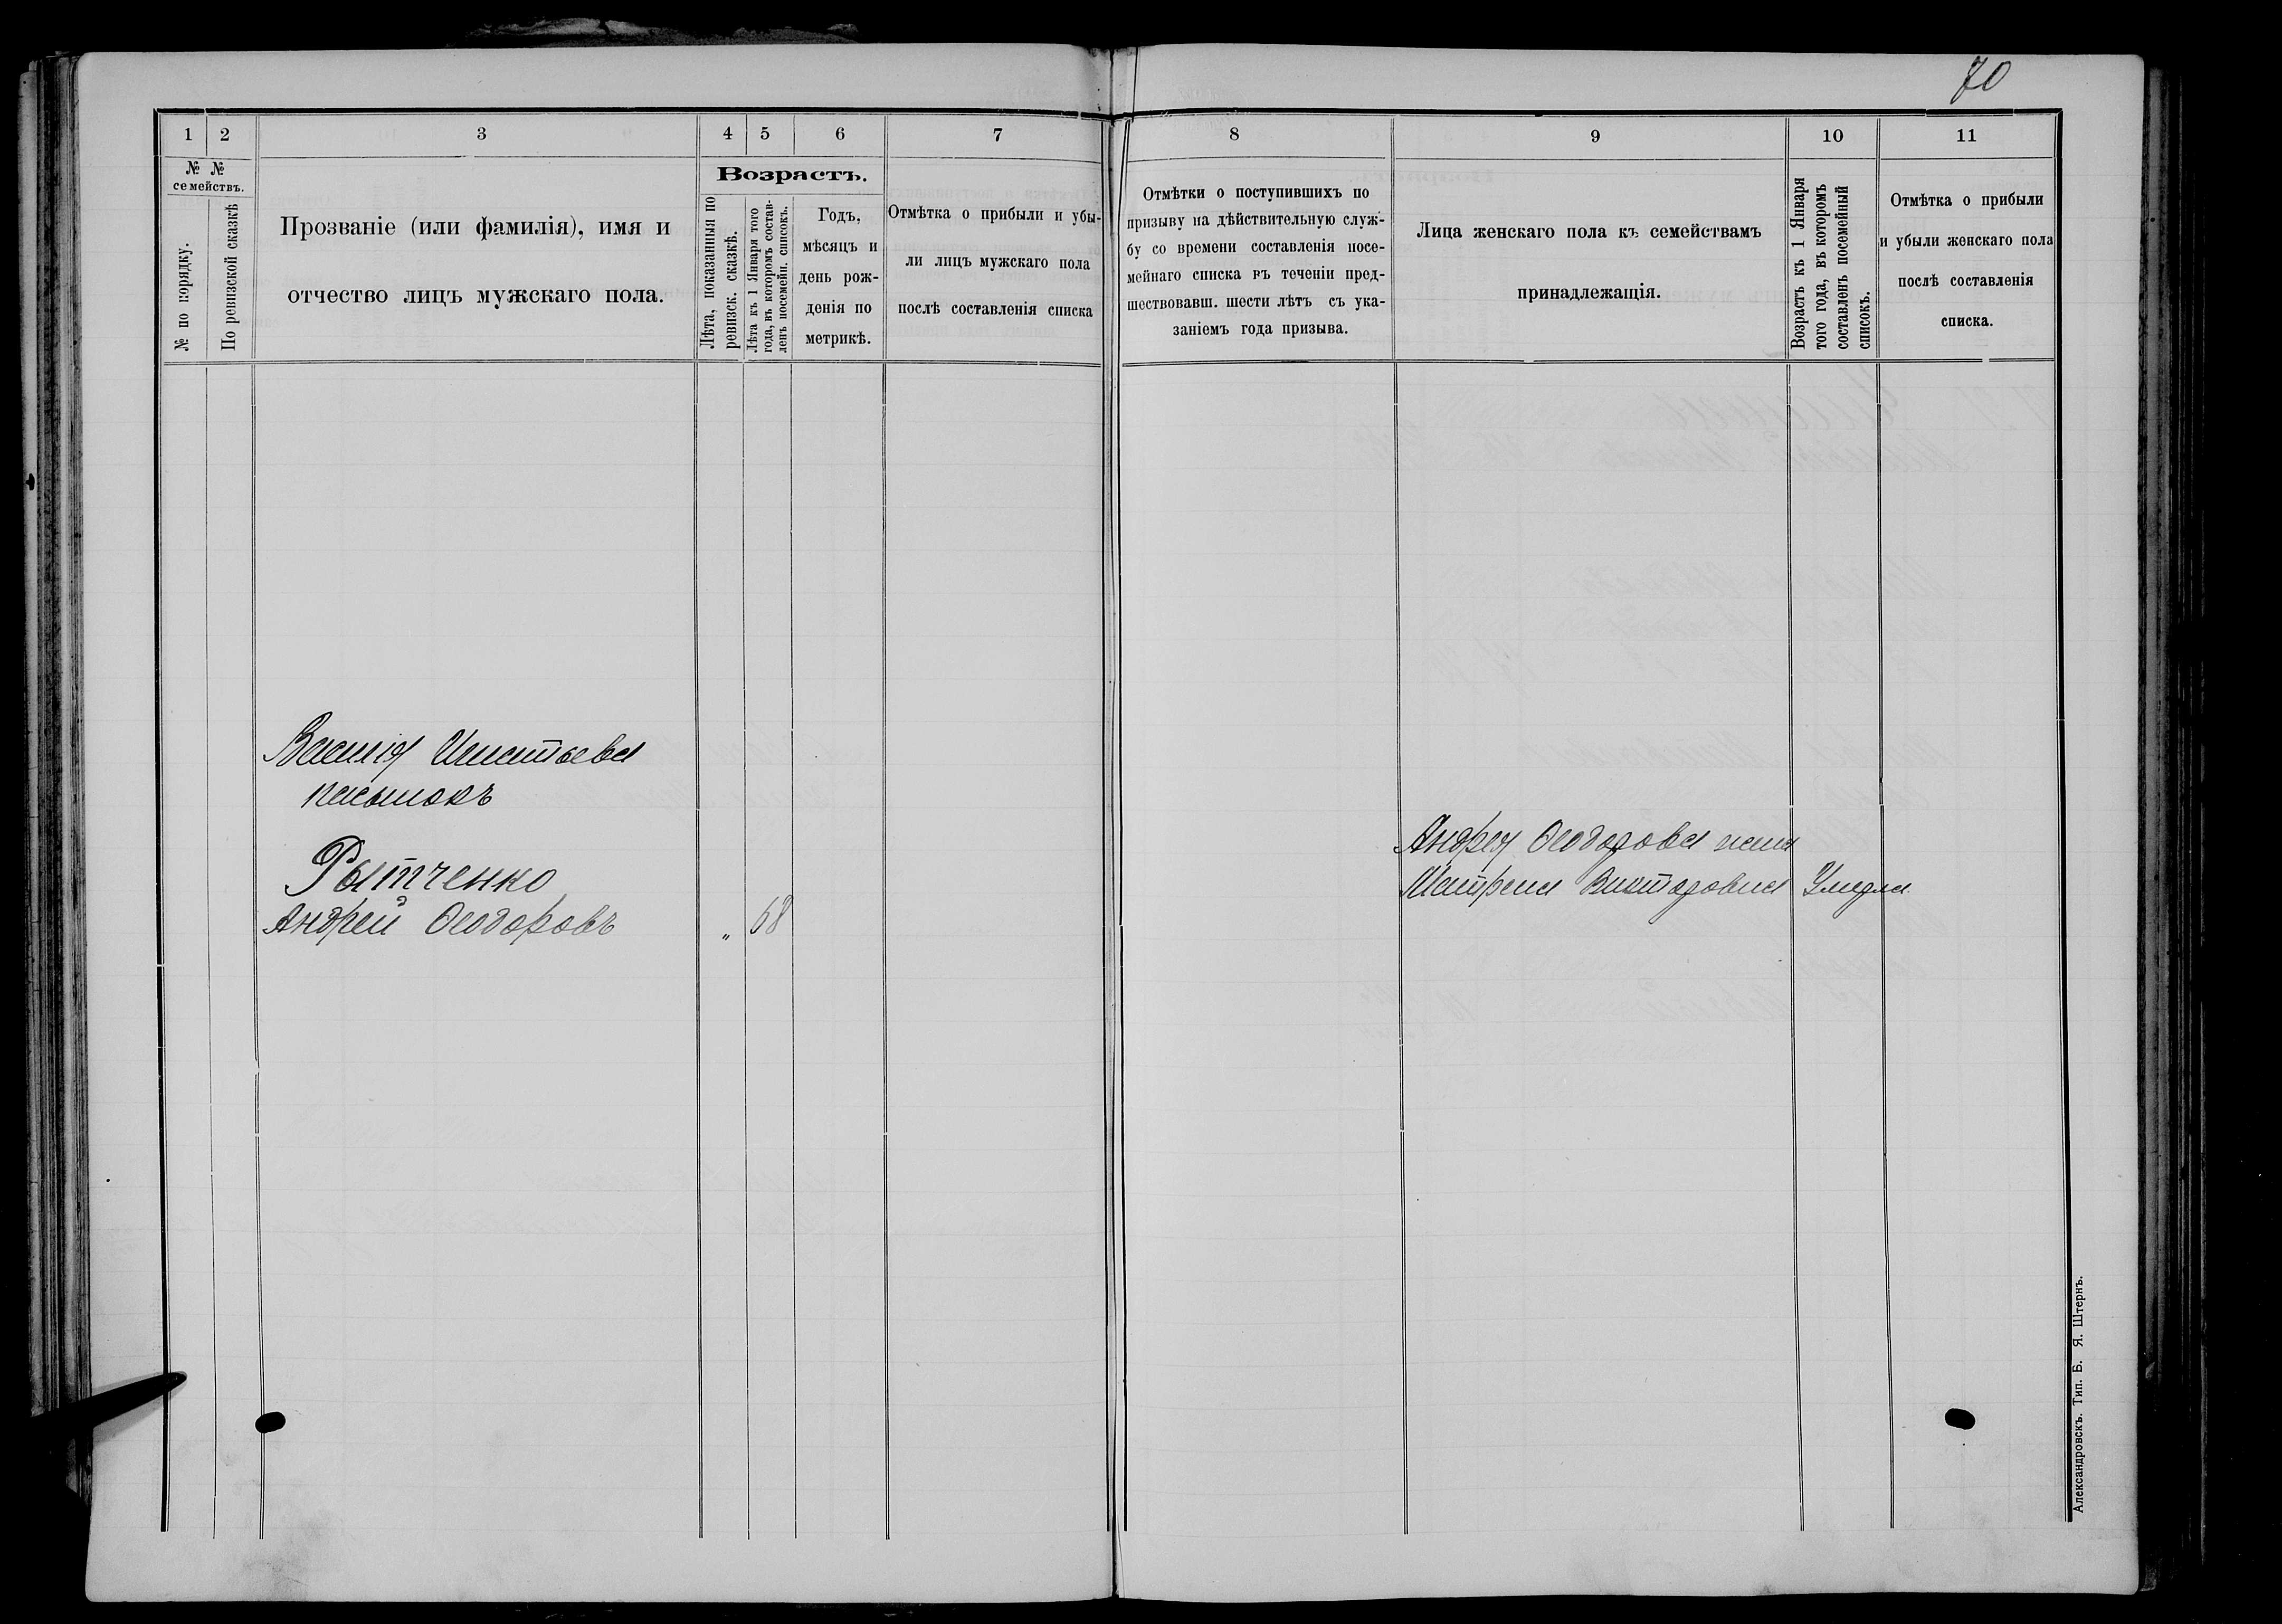 70
1 2 3 4 5 6 7
№ №
семействъ.
№ по порядку.
По ревизской сказкѣ
Прозваніе (или фамилія), имя и
отчество лицъ мужскаго пола.
Возрастъ.
Лѣта, показанныя по
ревизск. сказкѣ.
Лѣта къ 1 Января того
года, въ которомъ состав-
ленъ посемейн. списокъ.
Годъ,
мѣсяцъ и
день рож-
денія по
метрикѣ.
Отмѣтка о прибыли и убы-
ли лицъ мужскаго пола
послѣ составленія списка
Василія Игнатьева
пасынокъ
Рытченко
Андрей Ѳеодоровъ „ 68
8 9 10 11
Отмѣтки о поступившихъ по
призыву на дѣйствительную служ-
бу со времени составленія посе-
мейнаго списка въ теченіи пред-
шествовавш. шести лѣтъ съ ука-
заніемъ года призыва.
Лица женскаго пола къ семействамъ
принадлежащія.
Возрастъ къ 1 Января
того года, въ которомъ
составленъ посемейный
списокъ.
Отмѣтка о прибыли
и убыли женскаго пола
послѣ составленія
списка.
Андрея Ѳеодорова жена
Матрена Викторовна Умерла
Александровскъ. Тип. Б. Я. Штернъ.